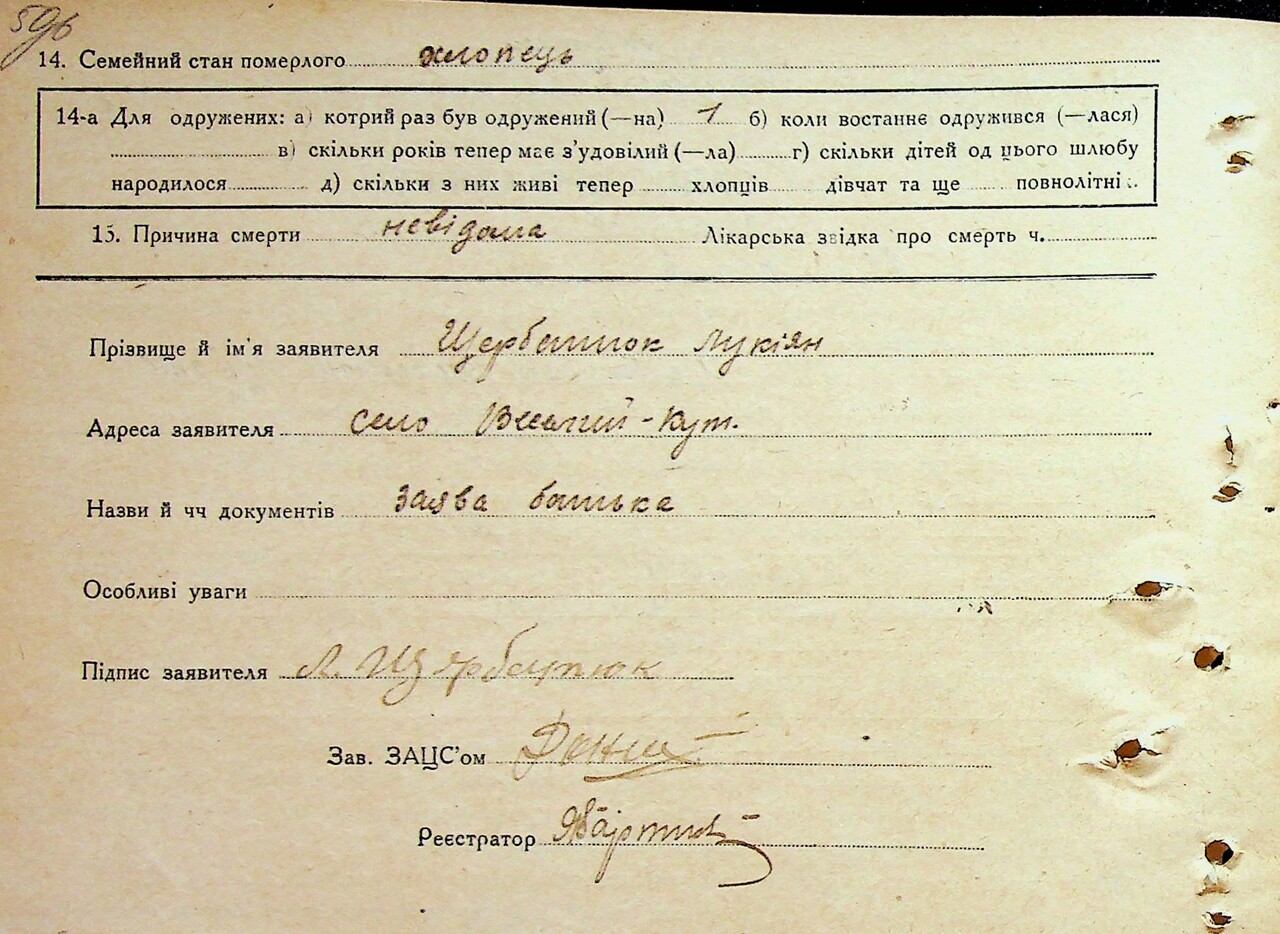 59б
14. Семейний стан померлого хлопець
14-а Для одружених: а) котрий раз був одружений (—на) 1 б) коли востаннє одружився (—лася)
в) скільки років тепер має з'удовілий (—ла) г) скільки дітей од цього шлюбу
народилося д) скільки з них живі тепер хлопців дівчат та ще повнолітні
15. Причина смерти невідома Лікарська звідка про смерть ч.
Прізвище й ім'я заявителя Щербатюк Лукіян
Адреса заявителя село Веселий-Кут.
Назви й чч документів заява батька
Особливі уваги
Підпис заявителя Л. Щербатюк
Зав. ЗАЦС'ом
Реєстратор